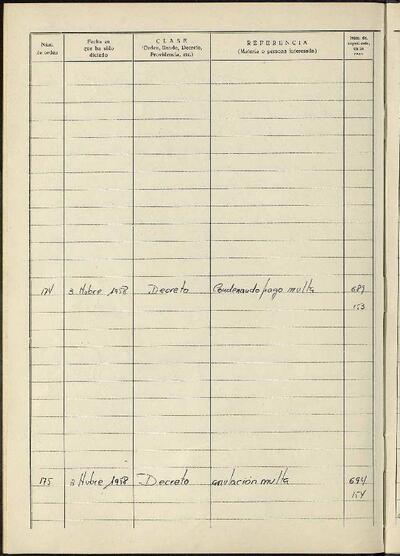 Núm. de orden
Fecha en que ha sido dictado
CLASE
(Orden, Bando, Decreto, Providencia, etc.)
REFERENCIA
(Materia o persona interesada)
Núm. de
174 3 Nbre 1958 Decreto Condenando pago multa 689
153
175 3 Nbre 1958 Decreto anulación multa 694
154